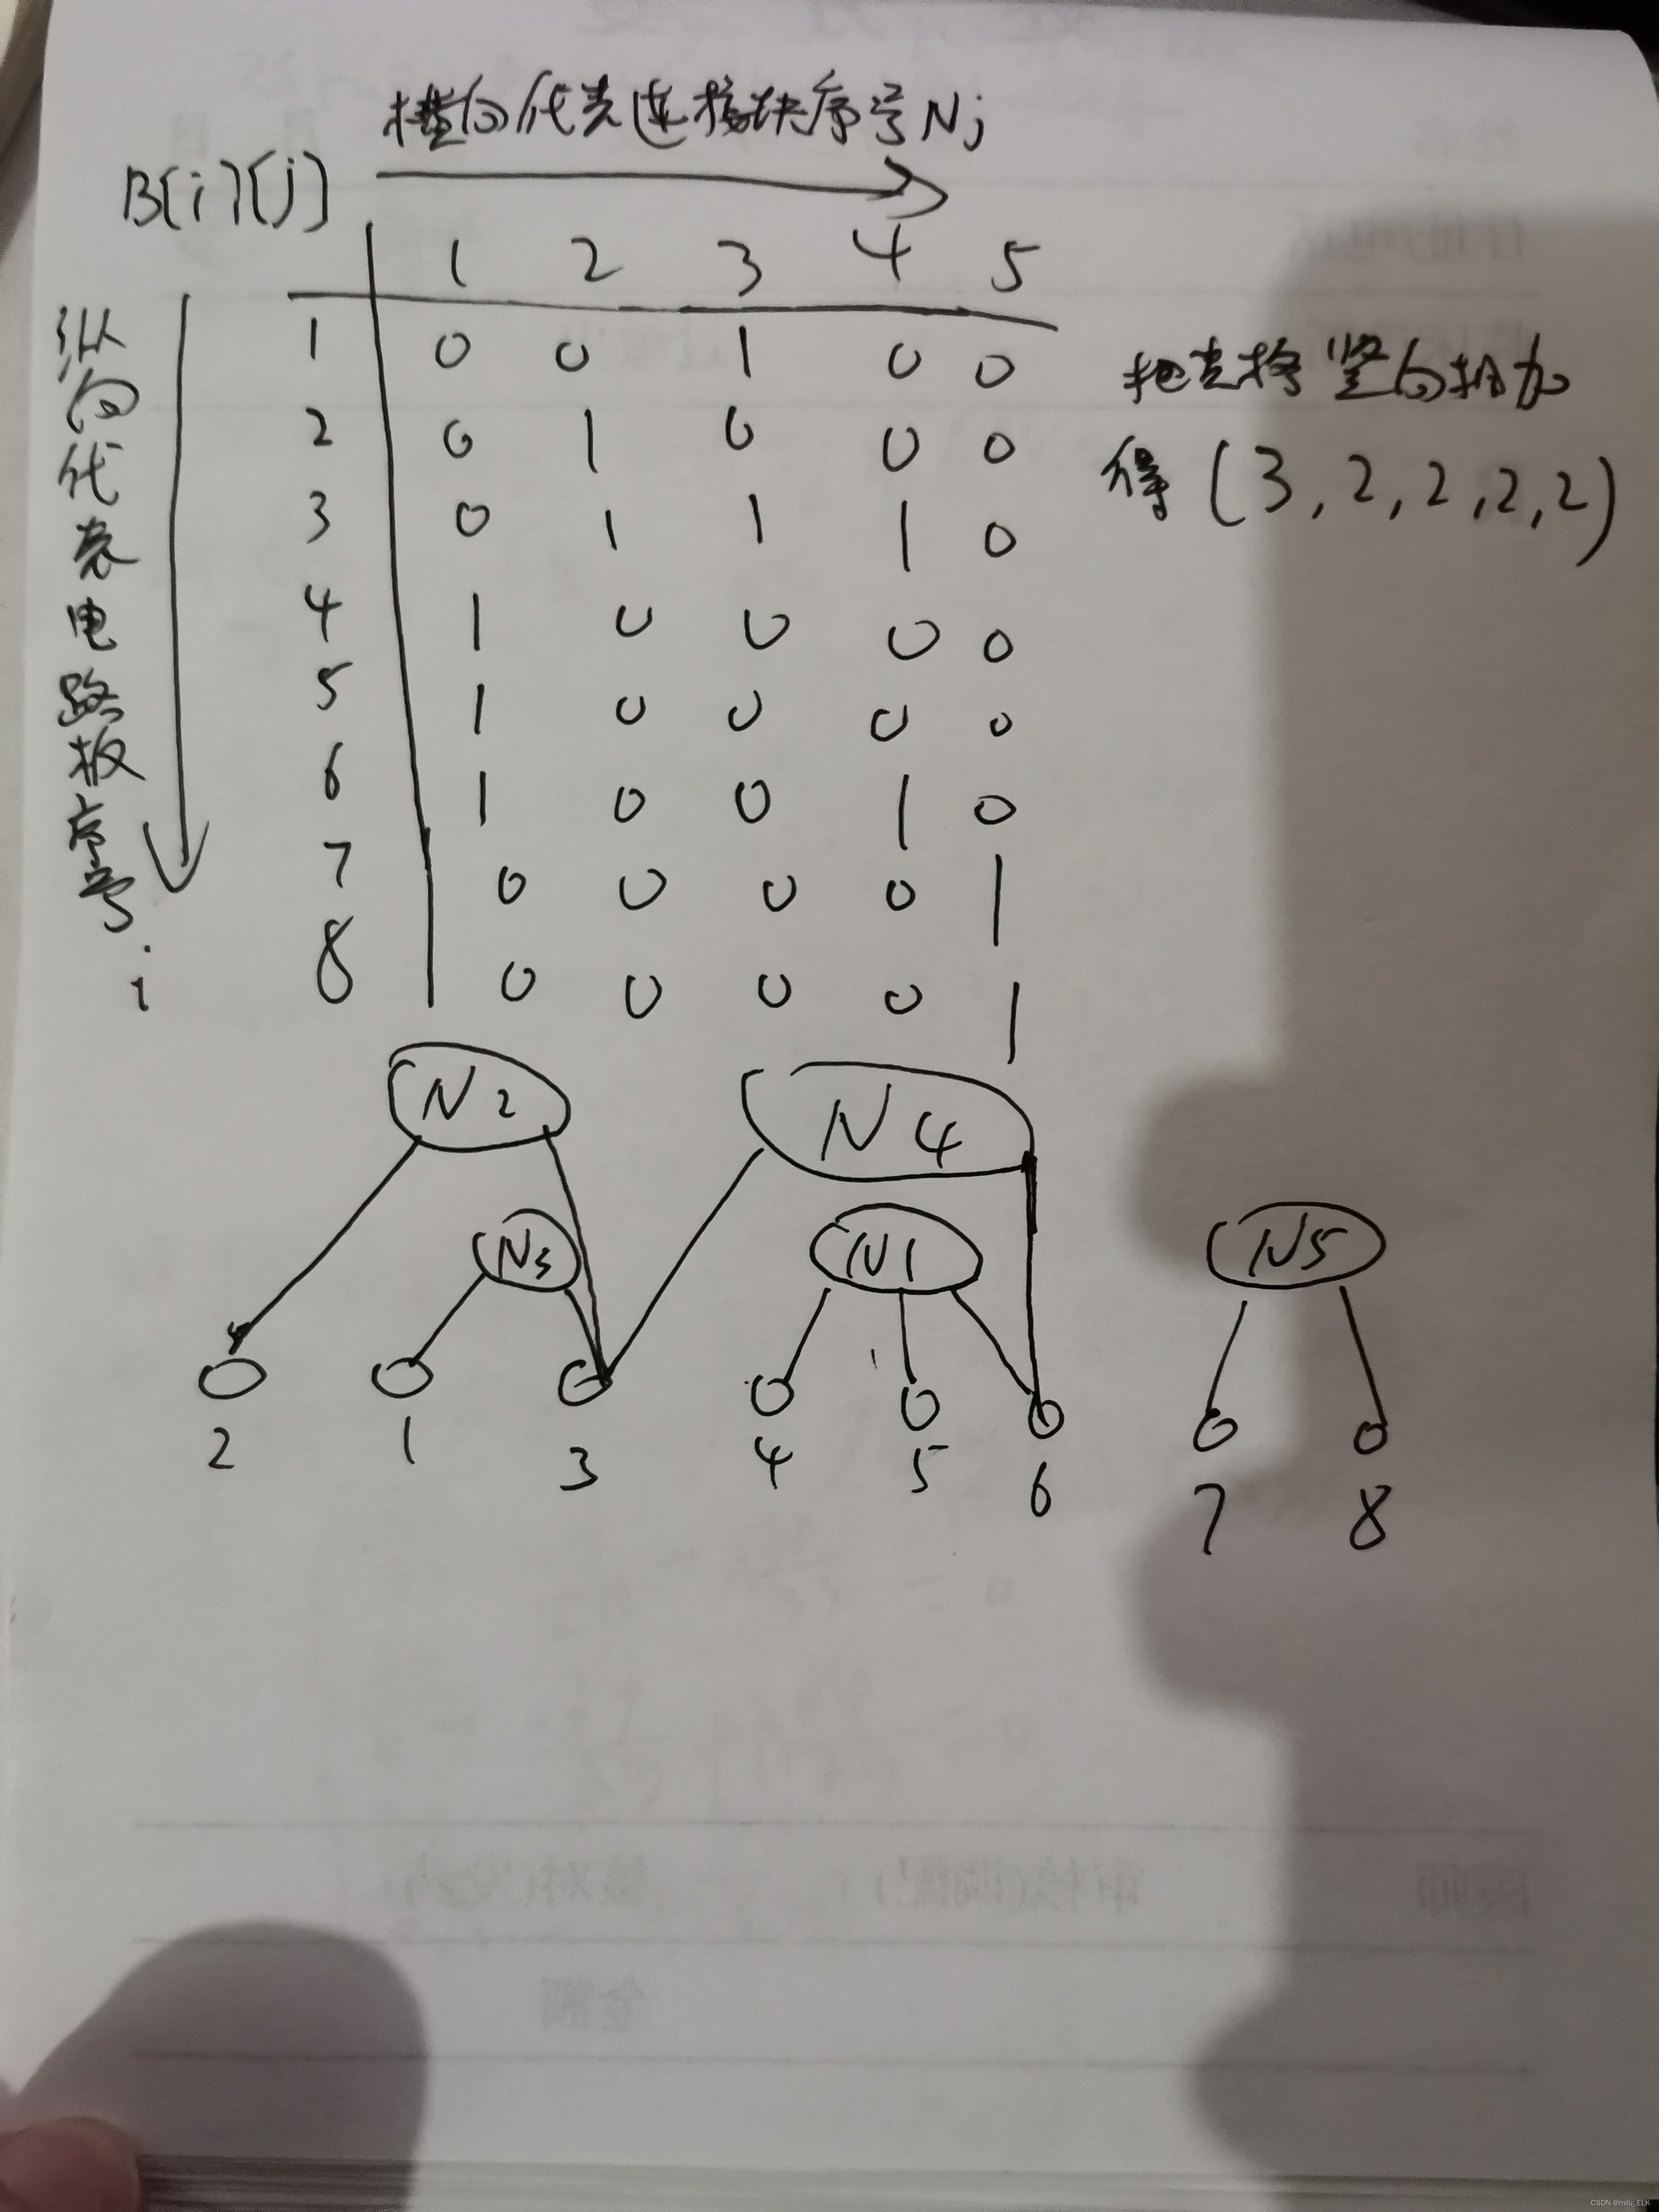 横向代表连接块序号Nj
B[i][j]
1 2 3 4 5
纵向代表电路板序号i
1 0 0 1 0 0
把表格竖向相加
2 0 1 0 0 0
得(3,2,2,2,2)
3 0 1 1 1 0
4 1 0 0 0 0
5 1 0 0 0 0
6 1 0 0 1 0
7 0 0 0 0 1
8 0 0 0 0 1
N2 N4
N3 N1 N5
2 1 3 4 5 6 7 8
医师 审核(调配) 核对(发药)
金额
CSDN @milu_ELK